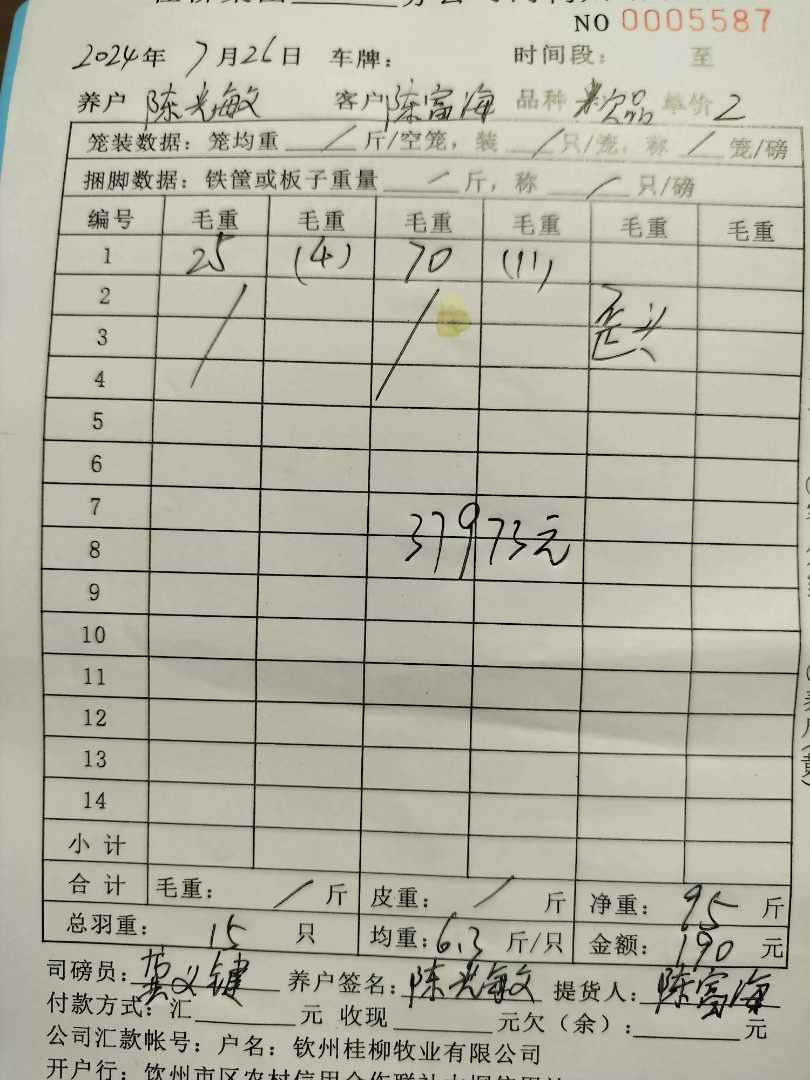 NO 0005587
2024年 7月26日 车牌： 时间段： 至
养户 陈光敏 客户 陈富海 品种 次品 单价 2
笼装数据：笼均重 / 斤/空笼，装 / 只/笼，称 / 笼/磅
捆脚数据：铁筐或板子重量 / 斤，称 / 只/磅
编号 毛重 毛重 毛重 毛重 毛重 毛重
1 25 (4) 70 (11)
2
3 歪头
4
5
6
7
37973元
8
9
10
11
12
13
14
小计
合计 毛重： / 斤 皮重： / 斤 净重： 95 斤
总羽重： 15 只 均重：6.3 斤/只 金额：190 元
司磅员： 养户签名：陈光敏 提货人：陈富海
付款方式：汇 元 收现 元欠（余）： 元
公司汇款帐号：户名：钦州桂柳牧业有限公司
开户行：钦州市区农村信用合作联社